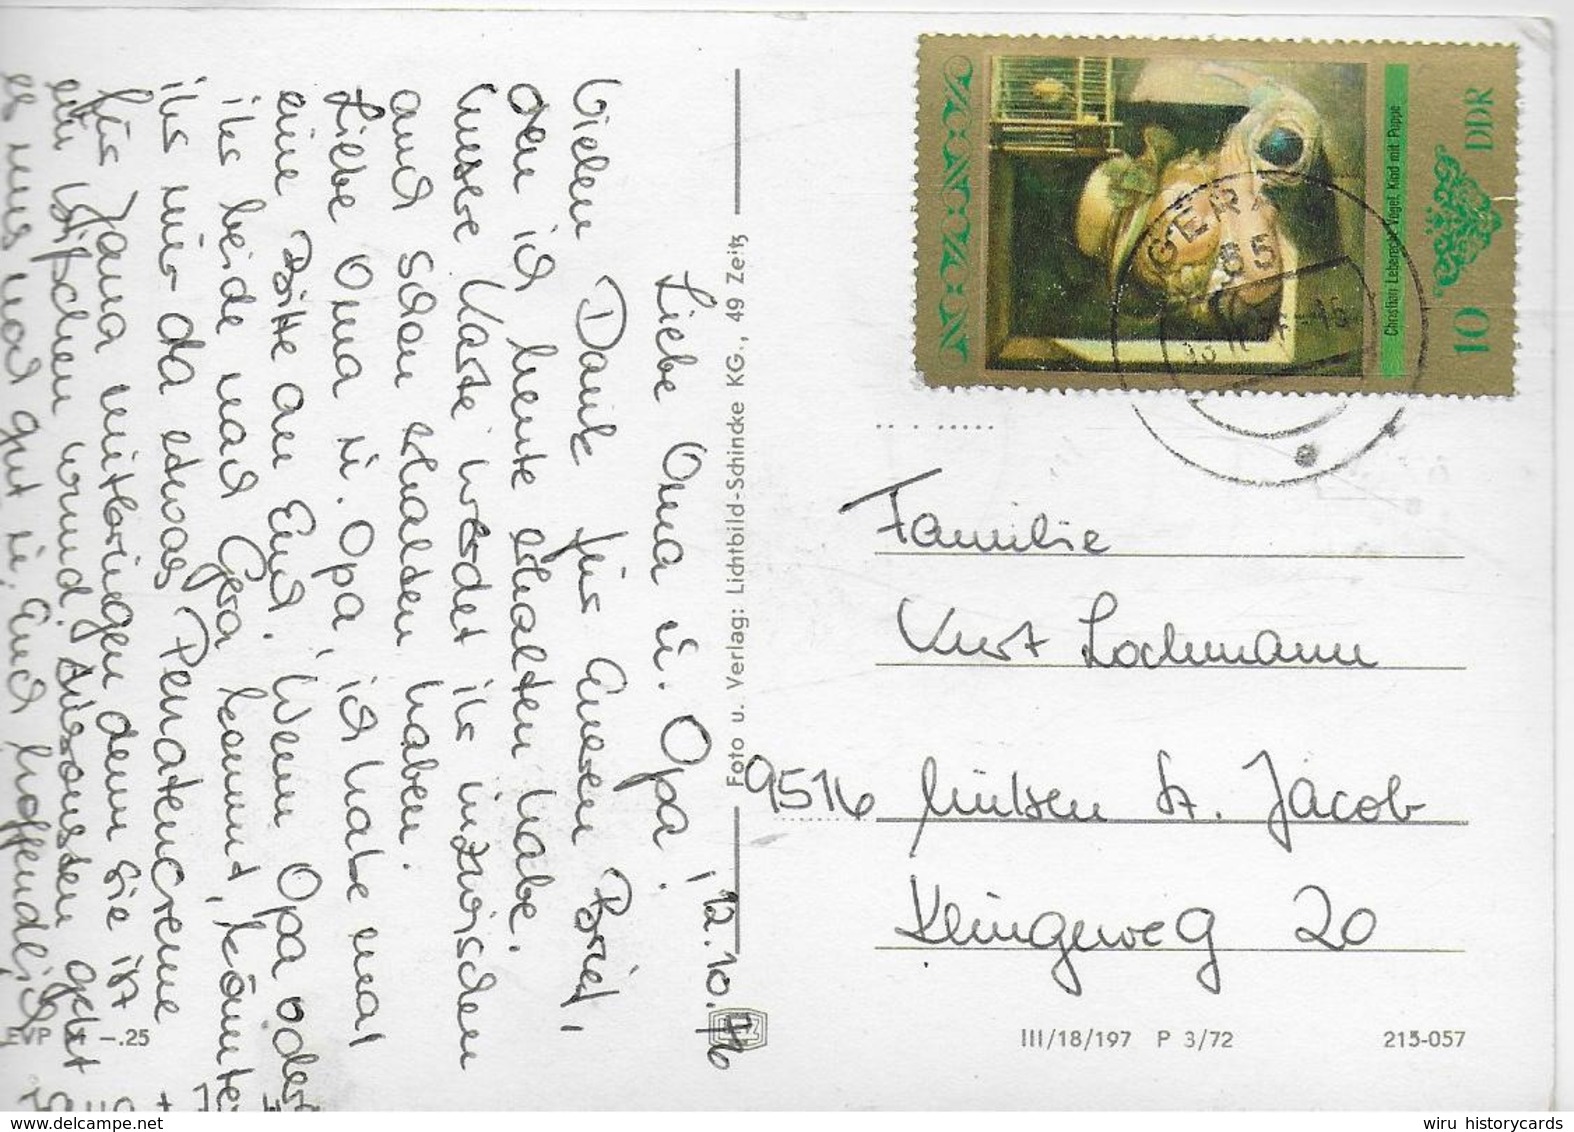 12.10.76
Liebe Oma u. Opa!
Vielen Dank für Eueren Brief,
den ich heute erhalten habe.
Unsere Karte werdet ihr inzwischen
auch schon erhalten haben.
Liebe Oma u. Opa, ich habe mal
eine Bitte an Euch. Wenn Opa oder
ihr beide nach Gera kommt, könntet
ihr mir da etwas Penatencreme
für Jana mitbringen denn sie ist
ein bißchen wund. Ansonsten geht
es uns noch gut u. Euch hoffendlich
EVP -.25
Foto u. Verlag: Lichtbild-Schincke KG., 49 Zeitz
Christian Leberecht Vogel, Kind mit Puppe
10 DDR
GERA
65
Familie
Kurt Lochmann
9516 Mülsen St. Jacob
Klingeweg 20
III/18/197 P 3/72 213-057
wiru historycards